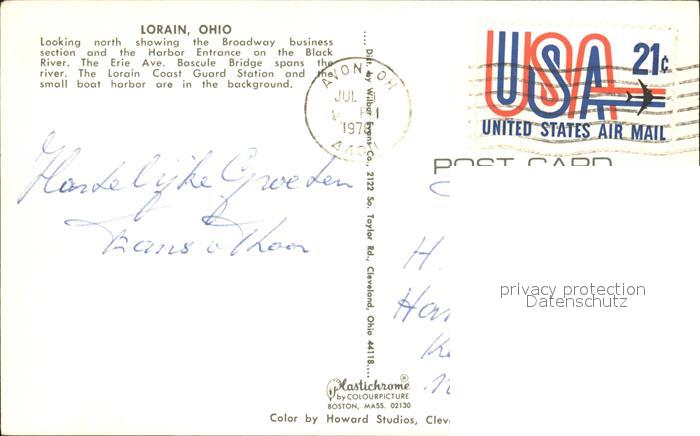 LORAIN, OHIO
Looking north showing the Broadway business
section and the Harbor Entrance on the Black
River. The Erie Ave. Bascule Bridge spans the
river. The Lorain Coast Guard Station and the
small boat harbor are in the background.
AVON, OH
JUL
PM
1976
USA 21c
UNITED STATES AIR MAIL
POST CARD
Hartelijke Groeten
Frans v Thoor
Dist. by Wilbur Evans Co., 2122 So. Taylor Rd., Cleveland, Ohio 44118
H.
privacy protection
Datenschutz
Plastichrome®
by COLOURPICTURE
BOSTON, MASS. 02130
Color by Howard Studios, Clev